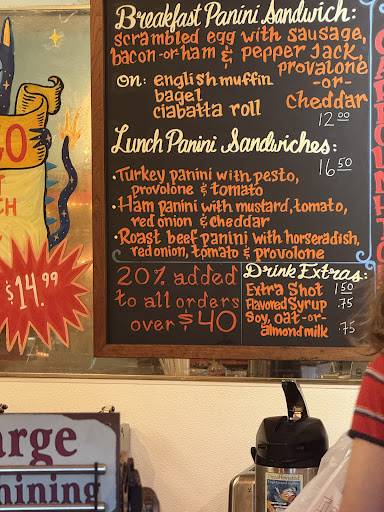 Breakfast Panini Sandwich:
scrambled egg with sausage,
bacon-or-ham & pepper jack,
provalone
-or-
cheddar
on: english muffin
bagel
ciabatta roll
12.00
Lunch Panini Sandwiches:
16.50
• Turkey panini with pesto,
provolone & tomato
• Ham panini with mustard, tomato,
red onion & cheddar
• Roast beef panini with horseradish,
red onion, tomato & provolone
20% added
to all orders
over $40
Drink Extras:
Extra Shot 1.50
Flavored Syrup .75
Soy, oat-or-
almond milk .75
$14.99
arge
mining